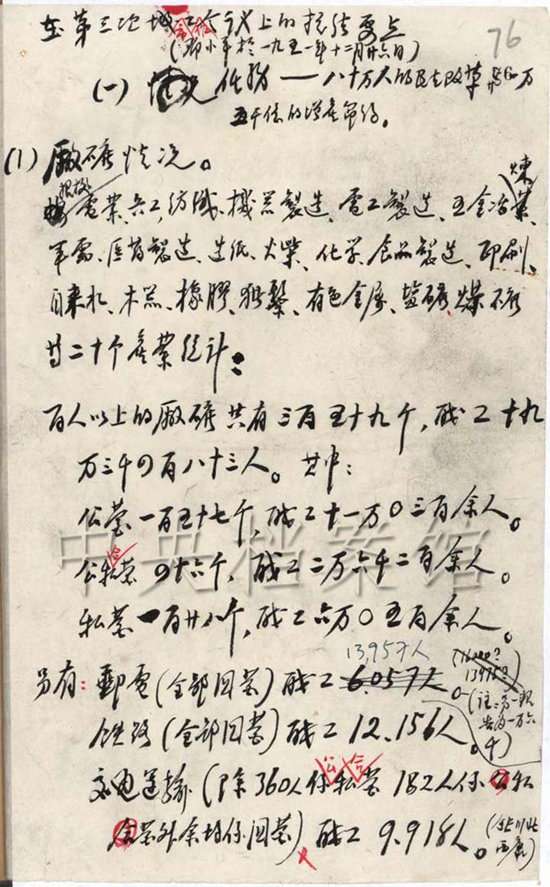 在第三次城工会议上的总结要点
76
(邓小平於一九五一年十二月廿六日)
(一) 任務——八十万人的民主改革与四万
五千億的增産節約。
(1) 廠礦情况。
電業、兵工、纺織、機器製造、電工製造、五金冶煉業、
軍需、医药製造、造纸、火柴、化学、食品製造、印刷、
自来水、木器、橡膠、猪鬃、有色金屬、盐礦、煤礦
等二十个産業统计：
百人以上的廠礦共有三百五十九个，職工十九
万三千四百八十三人。其中：
公营一百五十七个，職工十一万〇三百余人。
公私合营四十六个，職工二万六千二百余人。
私营一百廿八个，職工六万〇五百余人。
13,957人
另有：郵電(全部国营)職工6.057人。
铁路(全部国营)職工12.156人。
交通運輸(除360人係私营182人係公私
合营外余均係国营)，職工9.918人。
中央档案馆